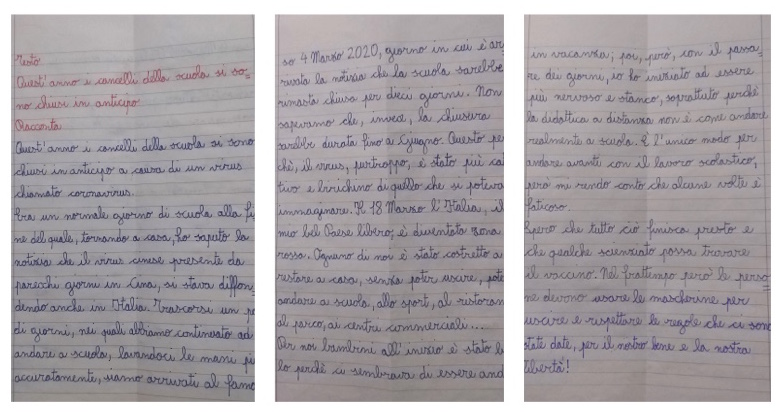 Testo
Quest'anno i cancelli della scuola si so=
no chiusi in anticipo
Racconta
Quest'anno i cancelli della scuola si sono
chiusi in anticipo a causa di un virus
chiamato coronavirus.
Era un normale giorno di scuola alla fi
ne del quale, tornando a casa, ho saputo la
notizia che il virus cinese presente da
parecchi giorni in Cina, si stava diffon=
dendo anche in Italia. Trascorsi un pa
di giorni, nei quali abbiamo continuato ad
andare a scuola, lavandoci le mani più
accuratamente, siamo arrivati al famo
so 4 Marzo 2020, giorno in cui è ar
rivata la notizia che la scuola sarebbe
rimasta chiusa per dieci giorni. Non
sapevamo che, invece, la chiusura
sarebbe durata fino a Giugno. Questo per
chè, il virus, purtroppo, è stato più cat
tivo e birichino di quello che si poteva
immaginare. Il 18 Marzo l'Italia, il
mio bel Paese libero, è diventato zona
rossa. Ognuno di noi è stato costretto a
restare a casa, senza poter uscire, poter
andare a scuola, allo sport, al ristoran
al parco, ai centri commerciali...
Per noi bambini all'inizio è stato bel
lo perchè ci sembrava di essere and
in vacanza; poi, però, con il passa=
re dei giorni, io ho iniziato ad essere
più nervoso e stanco, soprattutto perchè
la didattica a distanza non è come andare
realmente a scuola. È l'unico modo per
andare avanti con il lavoro scolastico,
però mi rendo conto che alcune volte è
faticoso.
Spero che tutto ciò finisca presto e
che qualche scienziato possa trovare
il vaccino. Nel frattempo però le perso=
ne devono usare le mascherine per
uscire e rispettare le regole che ci sono
state date, per il nostro bene e la nostra
libertà!